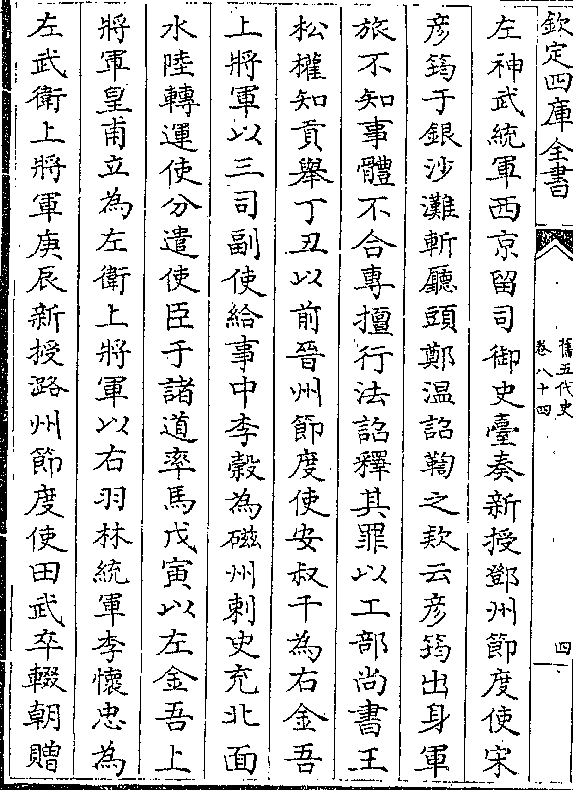 欽定四庫全書
舊五代史
卷八十四
四
左神武統軍西京留司御史臺奏新授鄧州節度使宋
彦筠于銀沙灘斬廳頭鄭温詔鞫之欵云彦筠出身軍
旅不知事體不合專擅行法詔釋其罪以工部尚書王
松權知貢舉丁丑以前晉州節度使安叔千為右金吾
上將軍以三司副使給事中李榖為磁州刺史充北面
水陸轉運使分遣使臣于諸道率馬戊寅以左金吾上
將軍皇甫立為左衛上將軍以右羽林統軍李懷忠為
左武衛上將軍庚辰新授潞州節度使田武卒輟朝贈